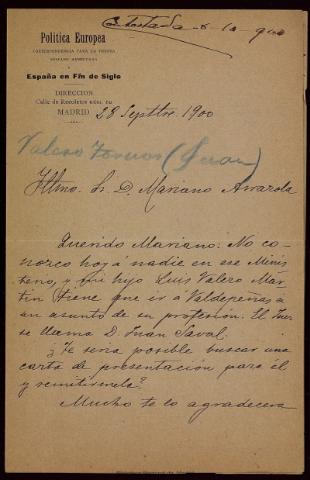 Contestada 6-10-900
Política Europea
CORRESPONDENCIA PARA LA PRENSA
HISPANO AMERICANA
Y
España en Fin de Siglo
DIRECCION
Calle de Recoletos núm.
MADRID
28 Septtre. 1900
Valero Tornos (Juan)
Illmo. Sr. D. Mariano Arrazola
Querido Mariano: No co-
nozco hoy á nadie en ese Minis
terio, y mi hijo Luis Valero Mar-
tin tiene que ir a Valdepeñas á
un asunto de su profesión. El Juez
se llama D. Juan Saval.
¿Te seria posible buscar una
carta de presentación para él
y remitirmela?
Mucho te lo agradecera